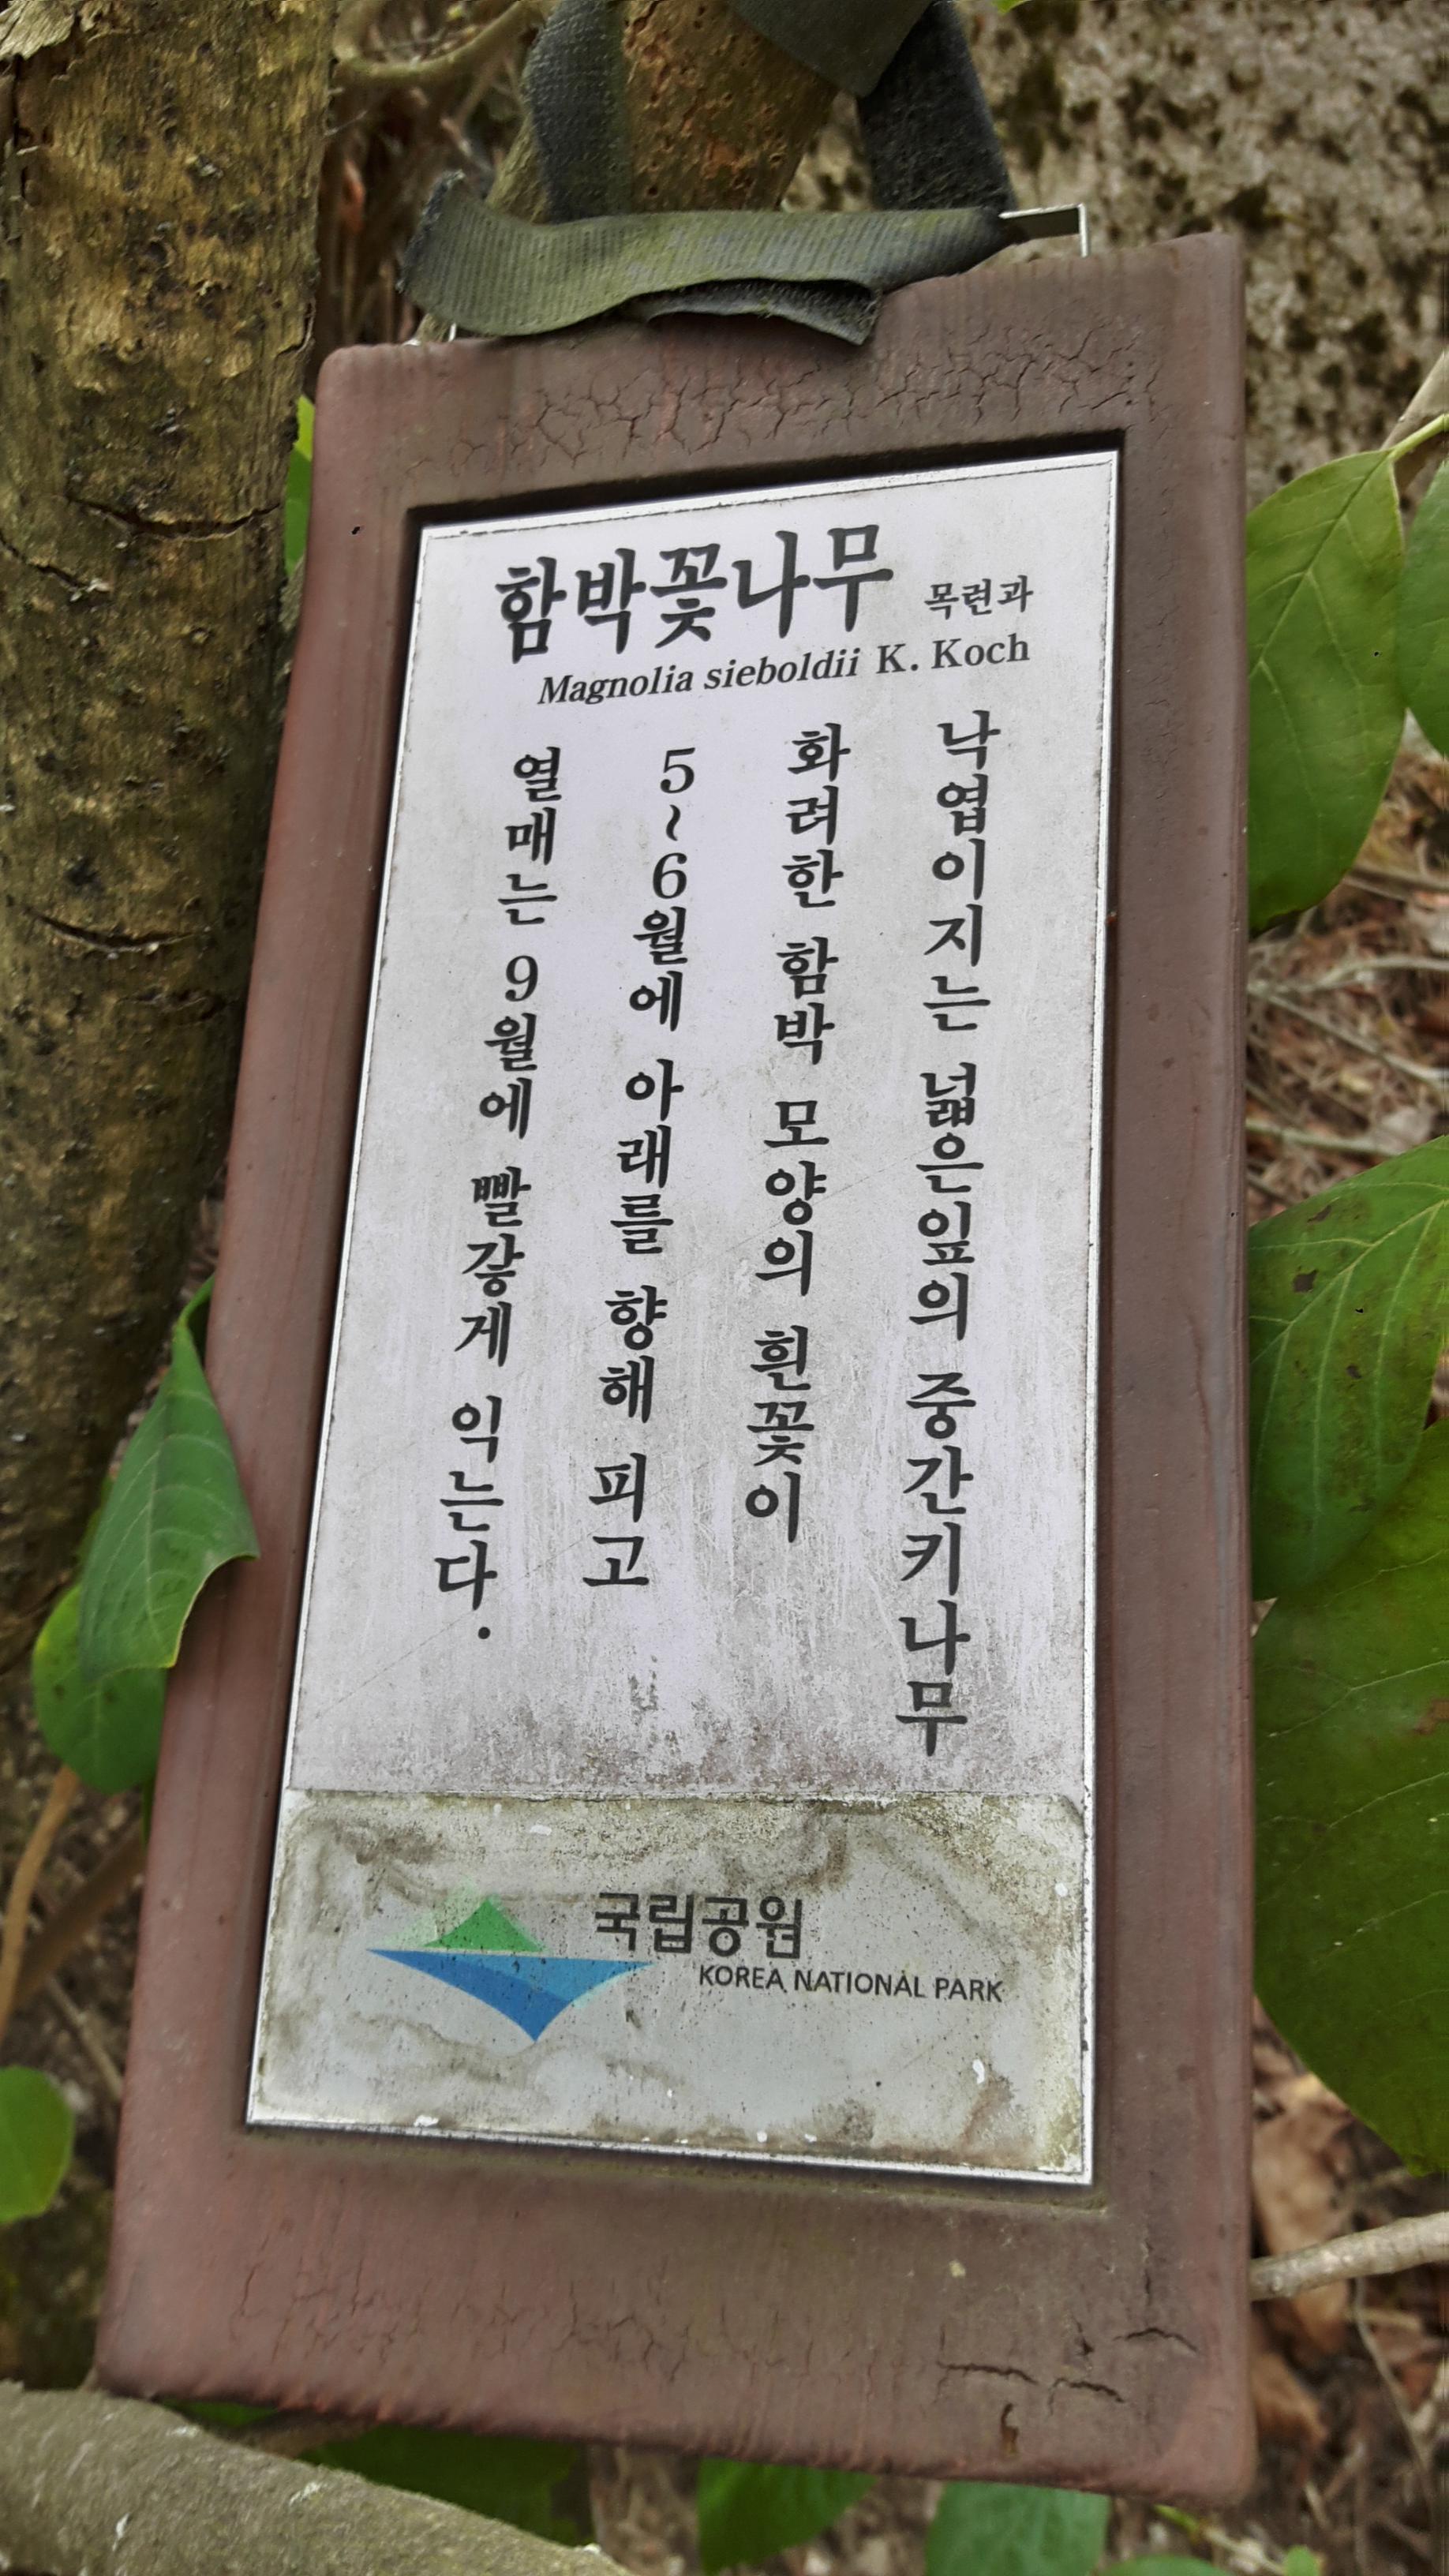 함박꽃나무 목련과
Magnolia sieboldii K. Koch
낙엽이지는 넓은잎의 중간키나무
화려한 함박 모양의 흰꽃이
5~6월에 아래를 향해 피고
열매는 9월에 빨갛게 익는다.
국립공원
KOREA NATIONAL PARK